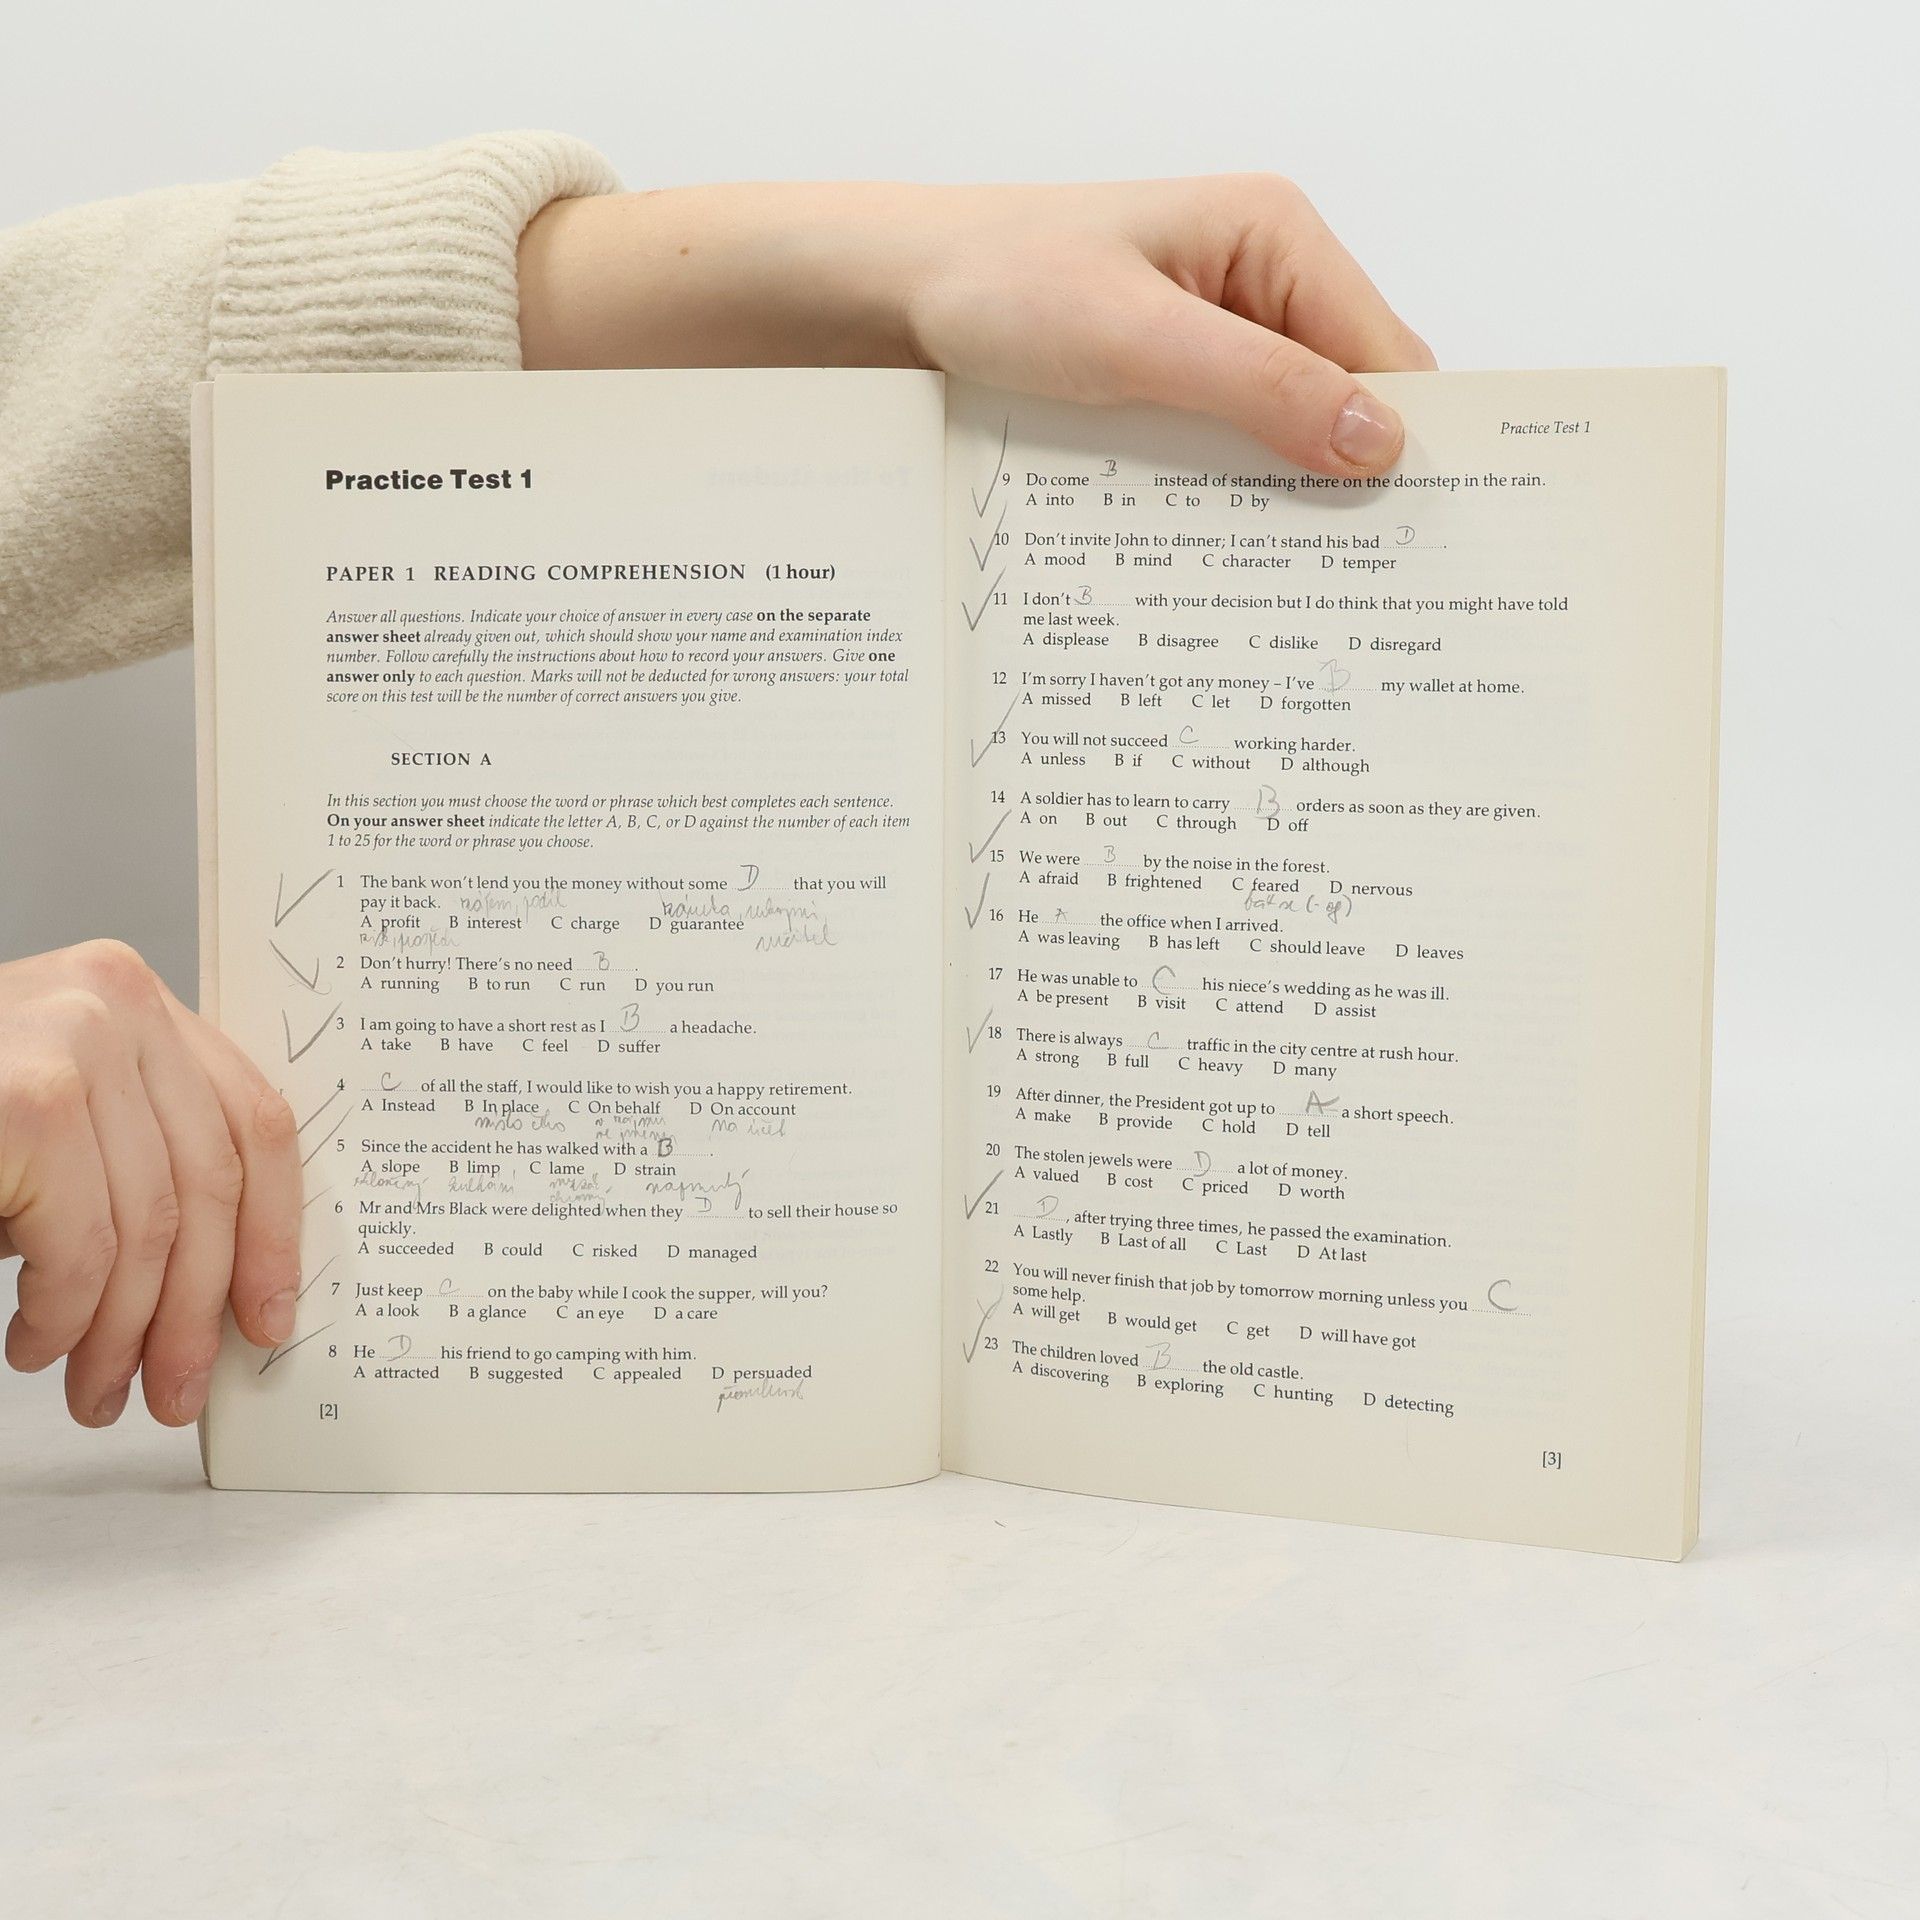 Practice Test 1
PAPER 1 READING COMPREHENSION (1 hour)
Answer all questions. Indicate your choice of answer in every case on the separate
answer sheet already given out, which should show your name and examination index
number. Follow carefully the instructions about how to record your answers. Give one
answer only to each question. Marks will not be deducted for wrong answers: your total
score on this test will be the number of correct answers you give.
SECTION A
In this section you must choose the word or phrase which best completes each sentence.
On your answer sheet indicate the letter A, B, C, or D against the number of each item
1 to 25 for the word or phrase you choose.
1 The bank won't lend you the money without some D that you will
pay it back.
A profit B interest C charge D guarantee
2 Don't hurry! There's no need B .
A running B to run C run D you run
3 I am going to have a short rest as I B a headache.
A take B have C feel D suffer
4 C of all the staff, I would like to wish you a happy retirement.
A Instead B In place C On behalf D On account
na účet
5 Since the accident he has walked with a B .
A slope B limp C lame D strain
napnutý
6 Mr and Mrs Black were delighted when they D to sell their house so
quickly.
A succeeded B could C risked D managed
7 Just keep C on the baby while I cook the supper, will you?
A a look B a glance C an eye D a care
8 He D his friend to go camping with him.
A attracted B suggested C appealed D persuaded
[2]
Practice Test 1
9 Do come B instead of standing there on the doorstep in the rain.
A into B in C to D by
10 Don't invite John to dinner; I can't stand his bad D .
A mood B mind C character D temper
11 I don't B with your decision but I do think that you might have told
me last week.
A displease B disagree C dislike D disregard
12 I'm sorry I haven't got any money – I've B my wallet at home.
A missed B left C let D forgotten
13 You will not succeed C working harder.
A unless B if C without D although
14 A soldier has to learn to carry B orders as soon as they are given.
A on B out C through D off
15 We were B by the noise in the forest.
A afraid B frightened C feared D nervous
16 He A the office when I arrived.
A was leaving B has left C should leave D leaves
17 He was unable to C his niece's wedding as he was ill.
A be present B visit C attend D assist
18 There is always C traffic in the city centre at rush hour.
A strong B full C heavy D many
19 After dinner, the President got up to A a short speech.
A make B provide C hold D tell
20 The stolen jewels were D a lot of money.
A valued B cost C priced D worth
21 D , after trying three times, he passed the examination.
A Lastly B Last of all C Last D At last
22 You will never finish that job by tomorrow morning unless you C
some help.
A will get B would get C get D will have got
23 The children loved B the old castle.
A discovering B exploring C hunting D detecting
[3]